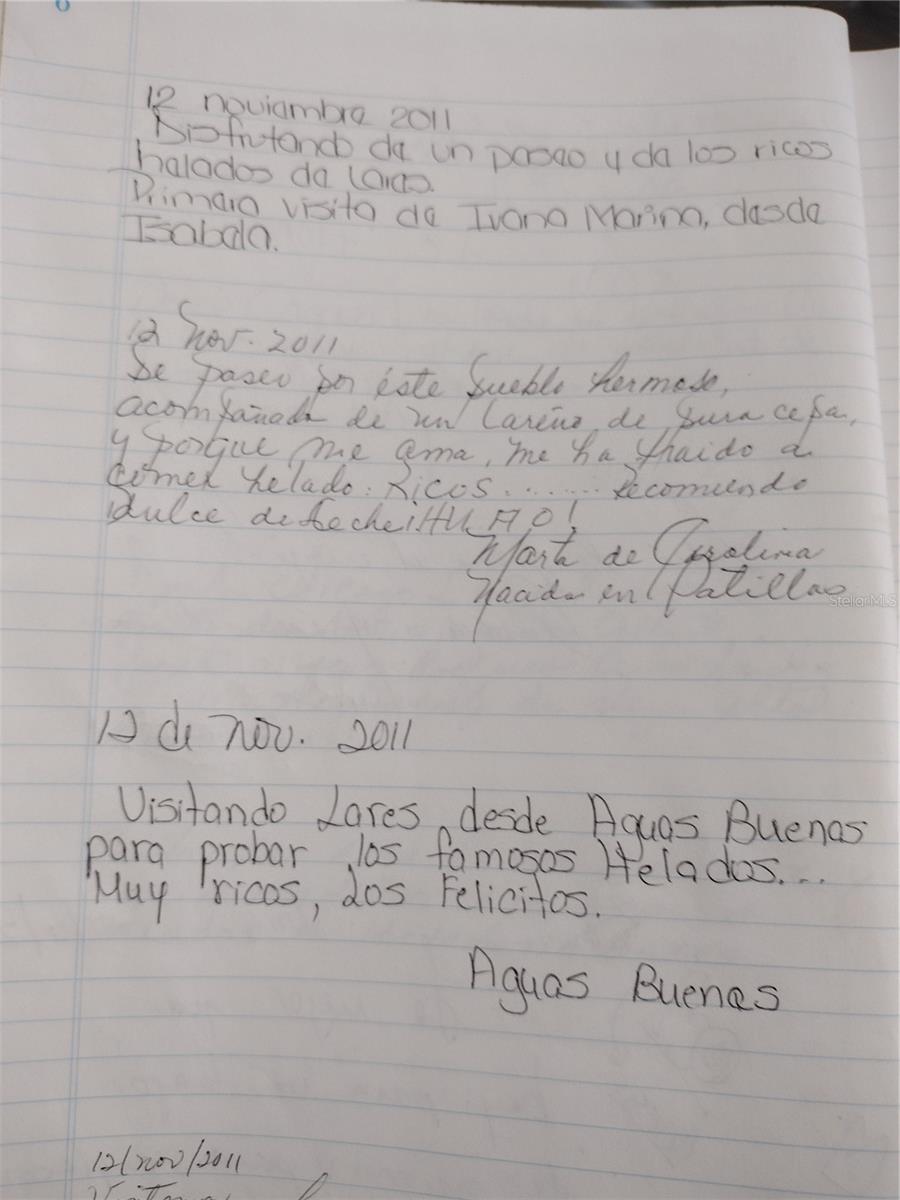 12 noviembre 2011
Disfrutando de un paseo y de los ricos
helados de Lares.
Primera visita de Ivana Marina, desde
Isabela.
12 Nov. 2011
De paseo por éste pueblo hermoso,
acompañada de un Lareño de pura cepa,
y porque me ama, me ha traido a
comer helado. Ricos....... Recomiendo
dulce de leche ¡HUAO!
Marta de Carolina
Nacida en Patillas
StellarMLS
12 de Nov. 2011
Visitando Lares, desde Aguas Buenas
para probar los famosos Helados...
Muy ricos, Los Felicitos.
Aguas Buenas
12/nov/2011